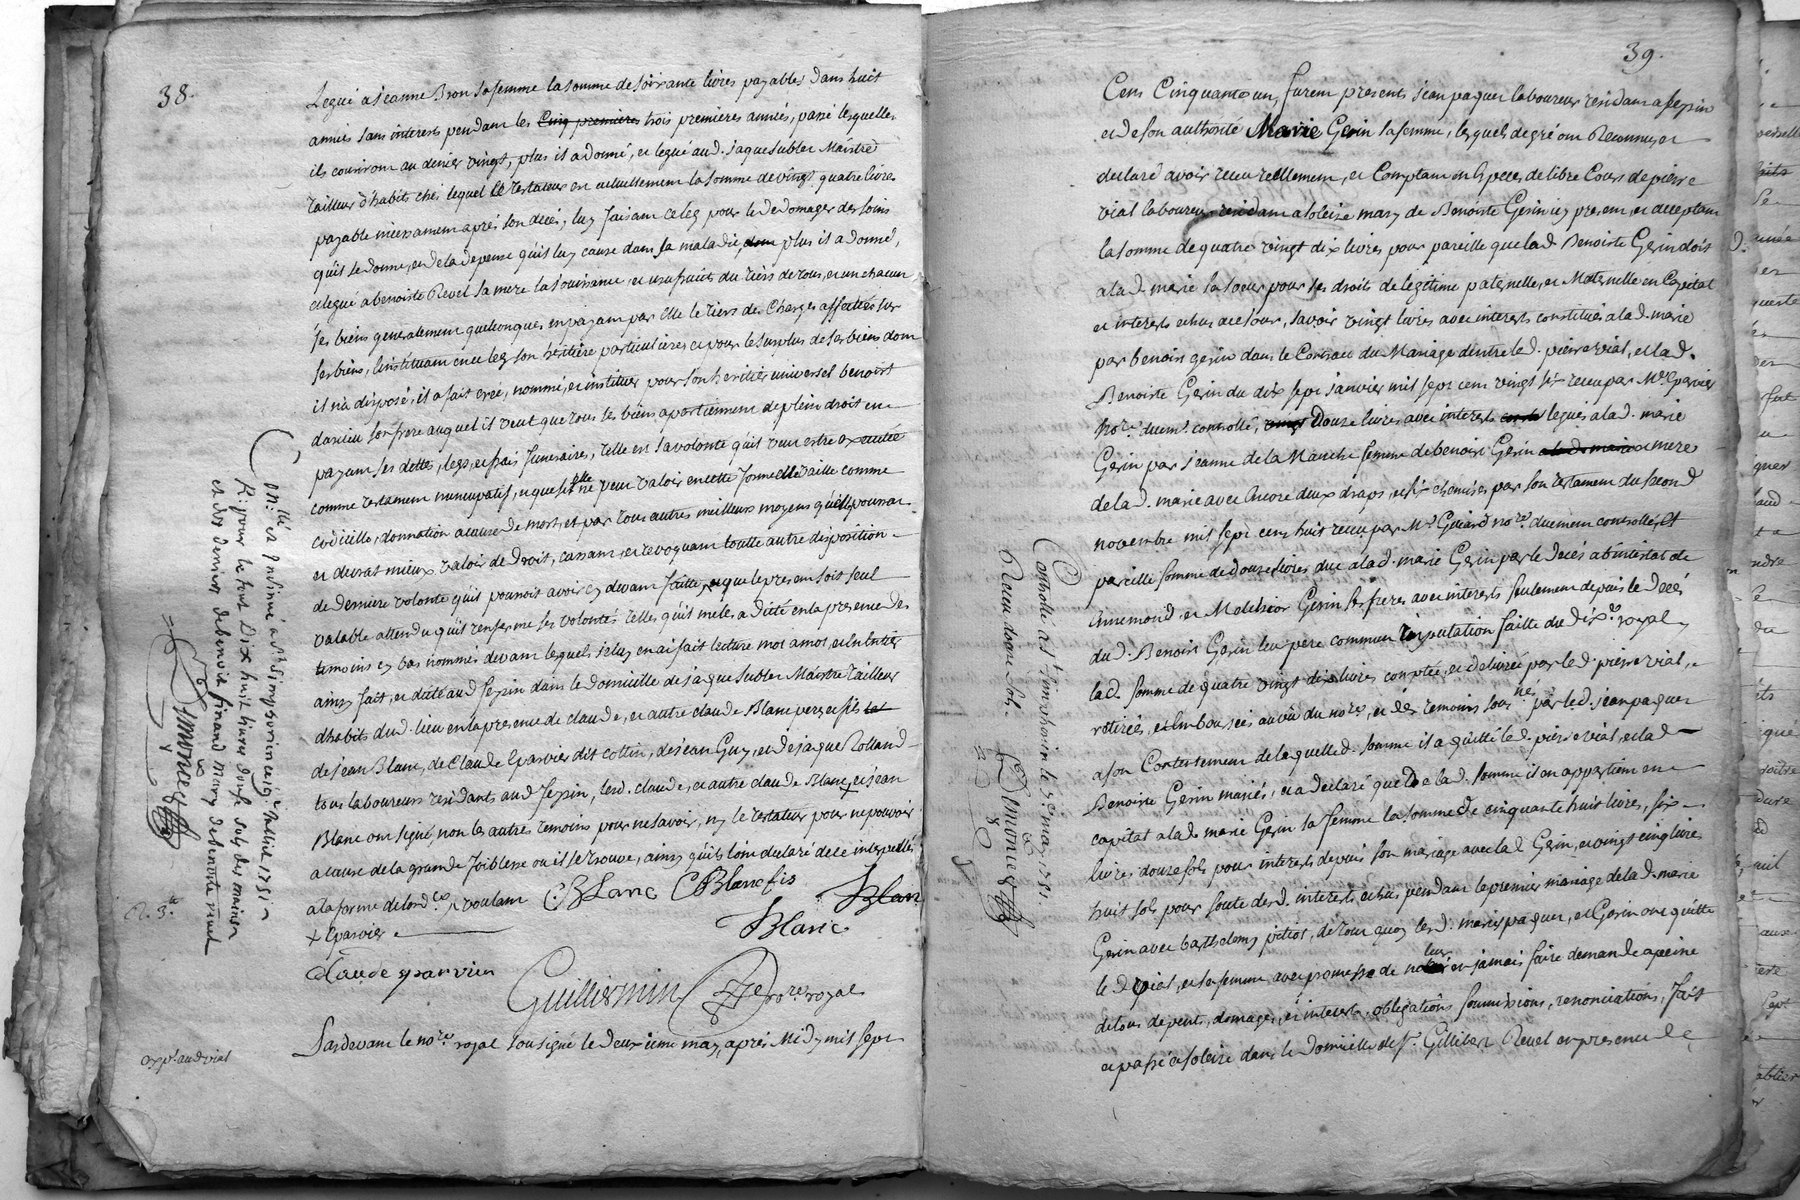 38.
Legué a jeanne Bron sa femme la somme de soixante livres payables dans huit
années sans interests pendant les cinq premieres trois premieres années, passé lesquelles
ils couriront au denier vingt, plus il a donné, et legué aud. jaque Subler Maistre
tailleur d'habits chés lequel le testateur est actuellement la somme de vingt quatre livres
payable incessament aprés son decés, luy faisant ce leg pour le dedomager des soins
qu'il se donne, et de la depense qu'il luy cause dans sa maladie, dont plus il a donné,
et legué a benoiste Revel sa mere la jouissance, et usufruict du tiers de tous, et un chacun
ses biens generalement quelconques en payant par elle le tiers des Charges affectées sur
ses biens, l'instituant en ce leg son héritière particulière et pour le surplus de ses biens dont
il n'a disposé, il a fait creé, nommé, et institué pour son heritier universel benoist
danieu son frere auquel il veut que tous ses biens apartiennent de plein droit en
payant ses dettes, legs, et frais funeraires, telle est sa volonté qu'il veut estre executée
comme testament nuncupatif, et que si elle ne peut valoir en cette forme elle vaille comme
codicille, donnation a cause de mort, et par tous autres meilleurs moyens qu'elle pourrat
et devrat mieux valoir de Droit, cassant, et revoquant toutte autre disposition
de derniere volonté qu'il pourroit avoir cy devant faitte, et que le present soit seul
valable attendu qu'il renferme ses volontés telles qu'il me les a dicté en la presence des
temoins cy bas nommés devant lesquels je luy en ai fait lecture mot a mot, et en entier
ainsy fait, et dicté aud Jepin dans le domicille de jaque Subler Maistre tailleur
d'habits dud. lieu en la presence de claude, et autre claude Blanc pere, et fils
de jean Blanc, de Claude Eparvier dit cottin, de jean Guy, et de jaque Rolland
tous laboureurs residants aud Jepin, lesd. claude, et autre claude Blanc, et jean
Blanc ont signé, non les autres temoins pour ne sçavoir, ny le testateur pour ne pouvoir
a cause de la grande foiblesse ou il se trouve, ainsy qu'ils l'ont declaré de ce interpellés
a la forme de l'ord.ce voulant C. BLanc CBlanc fis JBlanc
+ Eparvier
JBlanc
Claude eparvier
Guillermin no.re royal
Pardevant le no.re royal sousigné le deuxieme may, aprés Midy mil sept
Con.llé et insinué a St Simphorien le 9.e Juillet 1751
R: pour le tout Dix huit livres douse sols des mains
et des deniers de benoit finand mary de benoite revel
Demoncey
R. 3.tt
exp.é aud vial
39.
Cent Cinquante un, furent presents jean paquer laboureur residant a Jepin
et de son authorité Marie Gerin sa femme, lesquels de gré ont Reconnu, et
declaré avoir receu reellement, et Comptant en Especes de libre Cours de pierre
vial laboureur residant a soleise mary de Benoiste Gerin icy present, et acceptant
la somme de quatre vingt dix livres pour pareille que lad Benoiste Gerin doit
a lad. marie sa soeur pour ses droits de legitime paternelle, et Maternelle en Capital
et interests echus a ce jour, savoir vingt livres avec interests constitués a lad. marie
par benoit gerin dans le Contract du Mariage d'entre led. pierre vial, et lad.
Benoiste Gerin du dix sept janvier mil sept cent vingt six receu par M.e Eparvier
no.re duem.t controllé, vingt Douze livres avec interests legués a lad. marie
Gerin par jeanne de la Manche femme de benoist Gerin a lad. marie mere
de lad. marie avec Encore deux draps, et six chemises par son testament du second
novembre mil sept cent huit receu par M.e Guiard no.re duement controllé, Et
pareille somme de douze livres due a lad. marie Gerin par le decés ab intestat de
Annemond, et Melchior Gerin ses freres avec interests seulement depuis le decés
dud. Benoist Gerin leur pere commun Imputation faitte du dix.e royal
lad. somme de quatre vingt dix livres comptée, et delivrée par led. pierre vial,
retirée, et Emboursée au vû du no.re, et des temoins sous.nés par led. jean paquer
a son Contentement de laquelled. somme il a quitté led. pierre vial, et lad
Benoiste Gerin mariés, et a declaré que de lad. somme il en appartient en
capital a lad. marie Gerin sa femme la somme de cinquante huit livres, six
livres douze sols pour interests depuis son mariage avec lad Gerin, et vingt cinq livres
huit sols pour soute desd. interests echus pendant le premier mariage de lad. marie
Gerin avec barthelemy pitiot, de tout quoy lesd. mariés paquer, et Gerin ont quitté
led vial, et sa femme avec promesse de ne leur en jamais faire demande a peine
de tous depents, domages, et interests obligations soumissions, renonciations, fait
et passé a soleise dans le Domicille de s.r Gillibert Revel en presence de
Controllé a St Simphorien le 5.e may 1751.
Receu douze sols.
Demoncey